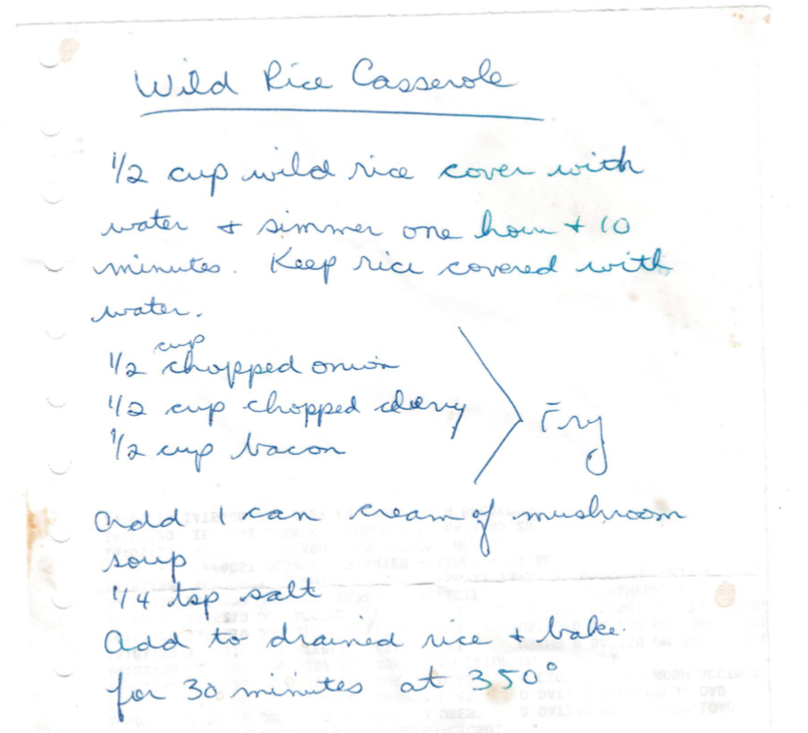 Wild Rice Casserole
1/2 cup wild rice cover with
water + simmer one hour + 10
minutes. Keep rice covered with
water.
cup
1/2 chopped onion
1/2 cup chopped celery
1/2 cup bacon
Fry
Add 1 can cream of mushroom
soup
1/4 tsp salt
Add to drained rice + bake.
for 30 minutes at 350°